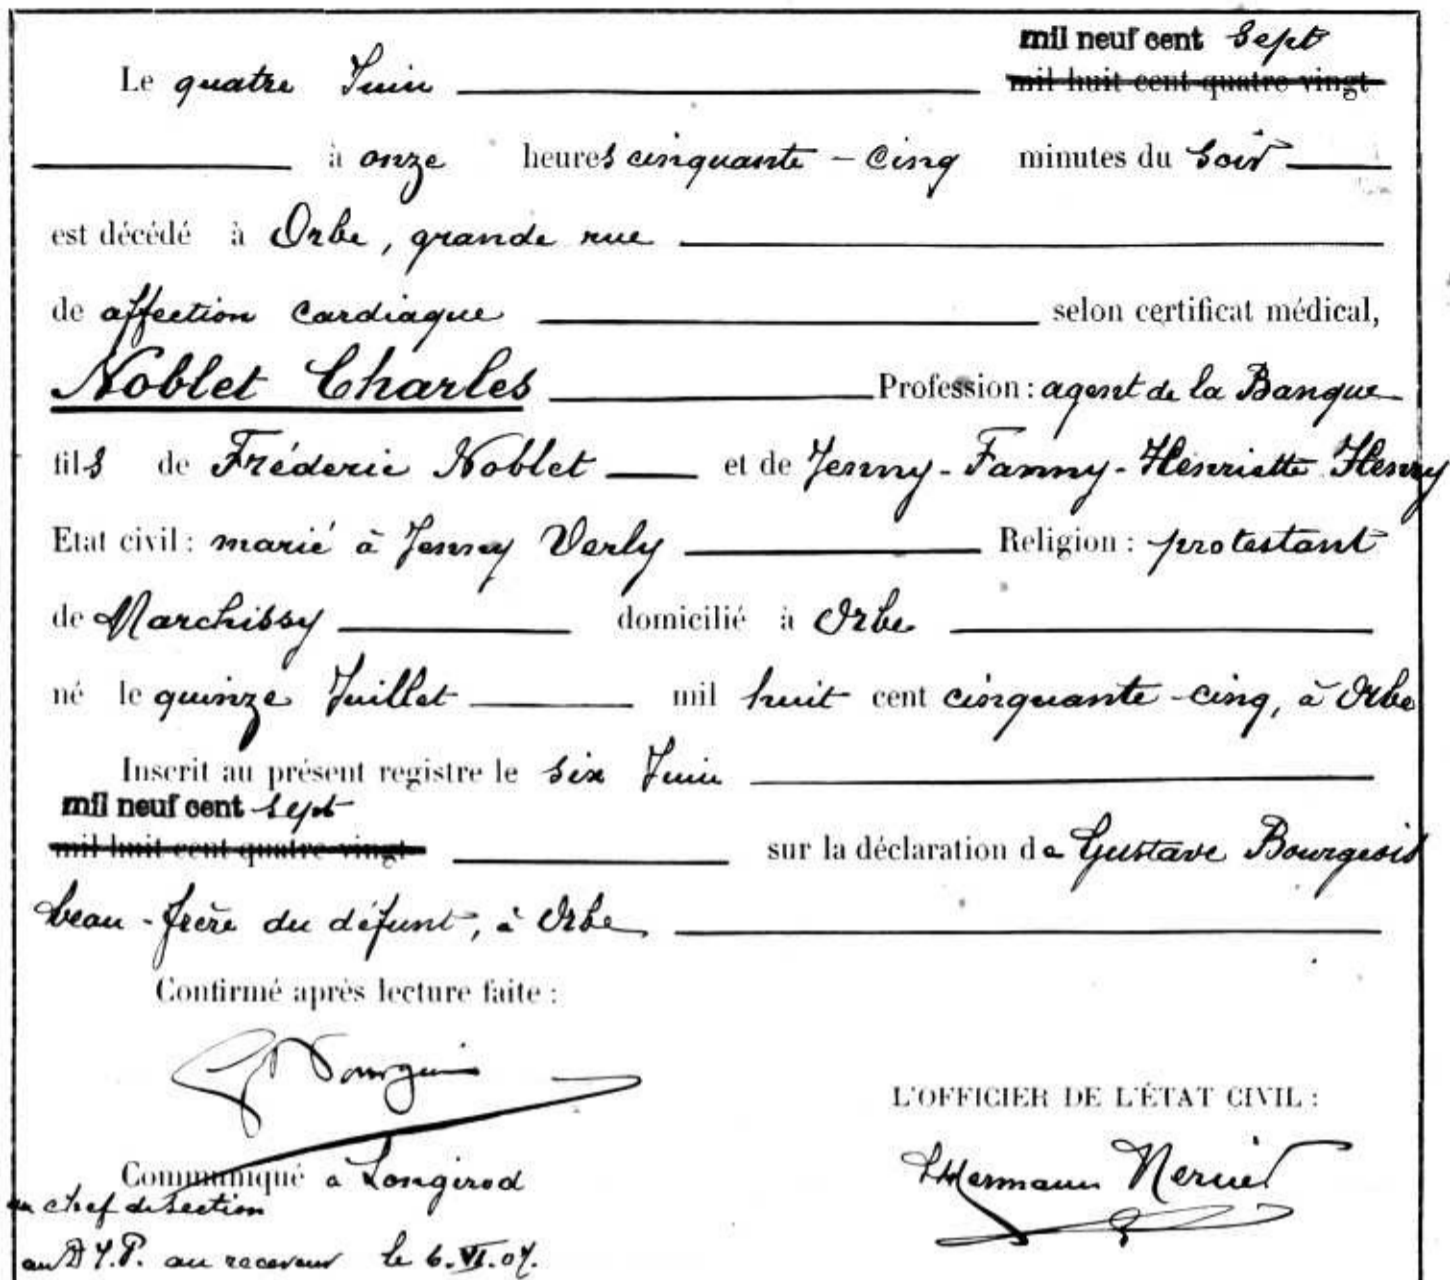 mil neuf cent sept
Le quatre Juin mil huit cent quatre-vingt
à onze heures cinquante-cinq minutes du soir
est décédé à Orbe, grande rue
de affection cardiaque selon certificat médical,
Noblet Charles Profession : agent de la Banque
fils de Fréderic Noblet et de Jenny-Fanny-Henriette Henry
Etat civil : marié à Jenny Verly Religion : protestant
de Marchissy domicilié à Orbe
né le quinze Juillet mil huit cent cinquante-cinq, à Orbe
Inscrit au présent registre le six Juin
mil neuf cent sept
mil huit cent quatre-vingt sur la déclaration de Gustave Bourgeois
beau-frère du défunt, à Orbe
Confirmé après lecture faite :
L'OFFICIER DE L'ÉTAT CIVIL :
Communiqué à Longirod
au chef de section
au receveur le 6.VI.07.